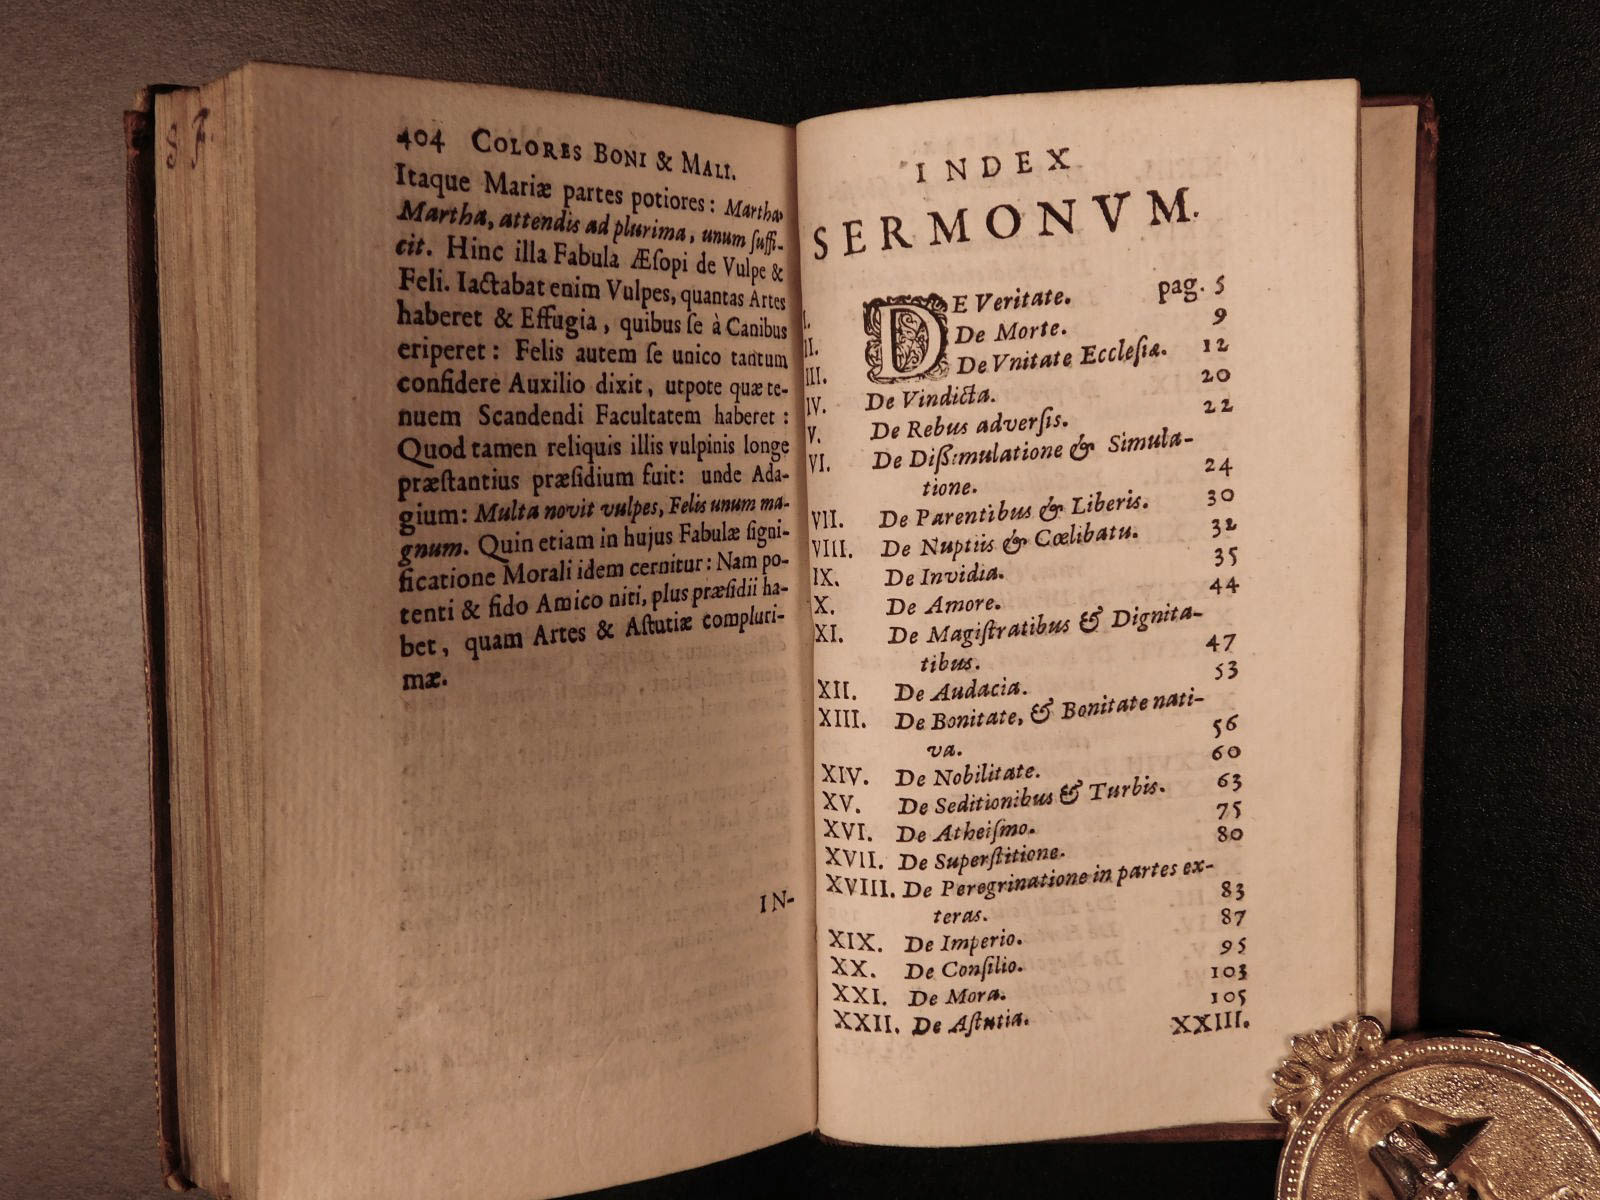 S F.
404 COLORES BONI & MALI.
Itaque Mariæ partes potiores: Martha,
Martha, attendis ad plurima, unum ſuffi-
cit. Hinc illa Fabula Æſopi de Vulpe &
Feli. Iactabat enim Vulpes, quantas Artes
haberet & Effugia, quibus ſe à Canibus
eriperet: Felis autem ſe unico tantum
confidere Auxilio dixit, utpote quæ te-
nuem Scandendi Facultatem haberet:
Quod tamen reliquis illis vulpinis longe
præſtantius præſidium fuit: unde Ada-
gium: Multa novit vulpes, Felis unum ma-
gnum. Quin etiam in hujus Fabulæ ſigni-
ficatione Morali idem cernitur: Nam po-
tenti & fido Amico niti, plus præſidii ha-
bet, quam Artes & Aſtutiæ compluri-
mæ.
IN-
INDEX
SERMONVM.
I. DE Veritate. pag. 5
II. De Morte. 9
III. De Vnitate Eccleſiæ. 12
IV. De Vindicta. 20
V. De Rebus adverſis. 22
VI. De Diſſimulatione & Simula-
tione. 24
VII. De Parentibus & Liberis. 30
VIII. De Nuptiis & Cœlibatu. 32
IX. De Invidia. 35
X. De Amore. 44
XI. De Magiſtratibus & Dignita-
tibus. 47
XII. De Audacia. 53
XIII. De Bonitate, & Bonitate nati-
va. 56
XIV. De Nobilitate. 60
XV. De Seditionibus & Turbis. 63
XVI. De Atheiſmo. 75
XVII. De Superſtitione. 80
XVIII. De Peregrinatione in partes ex-
teras. 83
XIX. De Imperio. 87
XX. De Conſilio. 95
XXI. De Mora. 103
XXII. De Aſtutia. 105
XXIII.